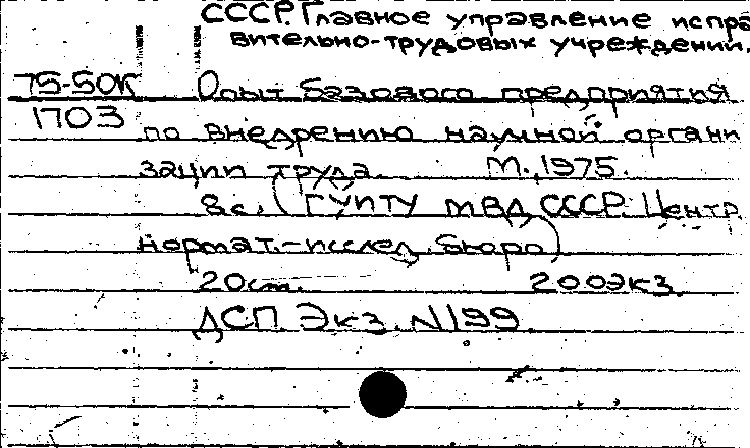 СССР. Главное управление испра
вительно-трудовых учреждений.
75-50к Опыт базового предприятия
1703 по внедрению научной органи
зации труда. М., 1975.
8с. (ГУИТУ МВД СССР. Центр.
нормат.-исслед. бюро)
20см. 200экз.
ДСП. Экз. N199.